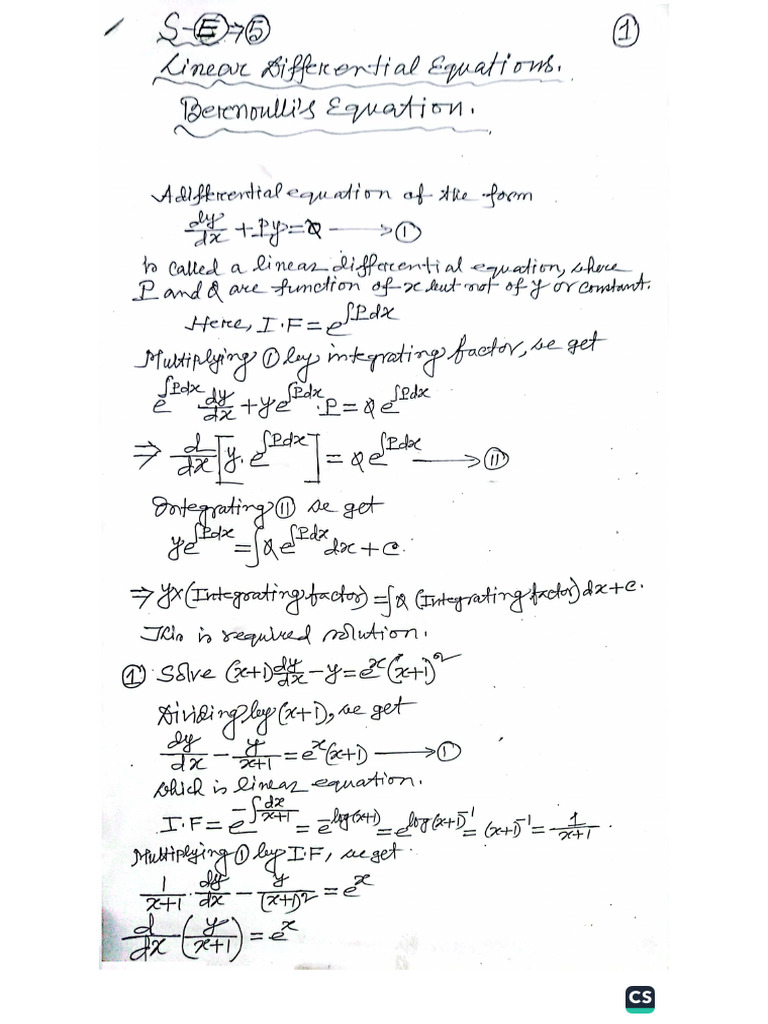 S-E⇒5 ①
Linear Differential Equations.
Bernoulli's Equation.
A differential equation of the form
dy/dx + Py = Q ⟶ ①
is called a linear differential equation, where
P and Q are function of x but not of y or constant.
Here, I.F = e^∫Pdx
Multiplying ① by integrating factor, we get
e^∫Pdx dy/dx + ye^∫Pdx . P = Q e^∫Pdx
⇒ d/dx [y. e^∫Pdx] = Q e^∫Pdx ⟶ ⑪
Integrating ⑪ we get
ye^∫Pdx = ∫Q e^∫Pdx dx + c.
⇒ y×(Integrating factor) = ∫Q (Integrating factor) dx + c.
This is required solution.
① Solve (x+1) dy/dx - y = e^x (x+1)^2
Dividing by (x+1), we get
dy/dx - y/(x+1) = e^x (x+1) ⟶ ①
which is linear equation.
I.F = e^-∫dx/(x+1) = e^-log(x+1) = e^log(x+1)^-1 = (x+1)^-1 = 1/(x+1).
Multiplying ① by I.F, we get.
1/(x+1) . dy/dx - y/(x+1)^2 = e^x
d/dx (y/(x+1)) = e^x
CS